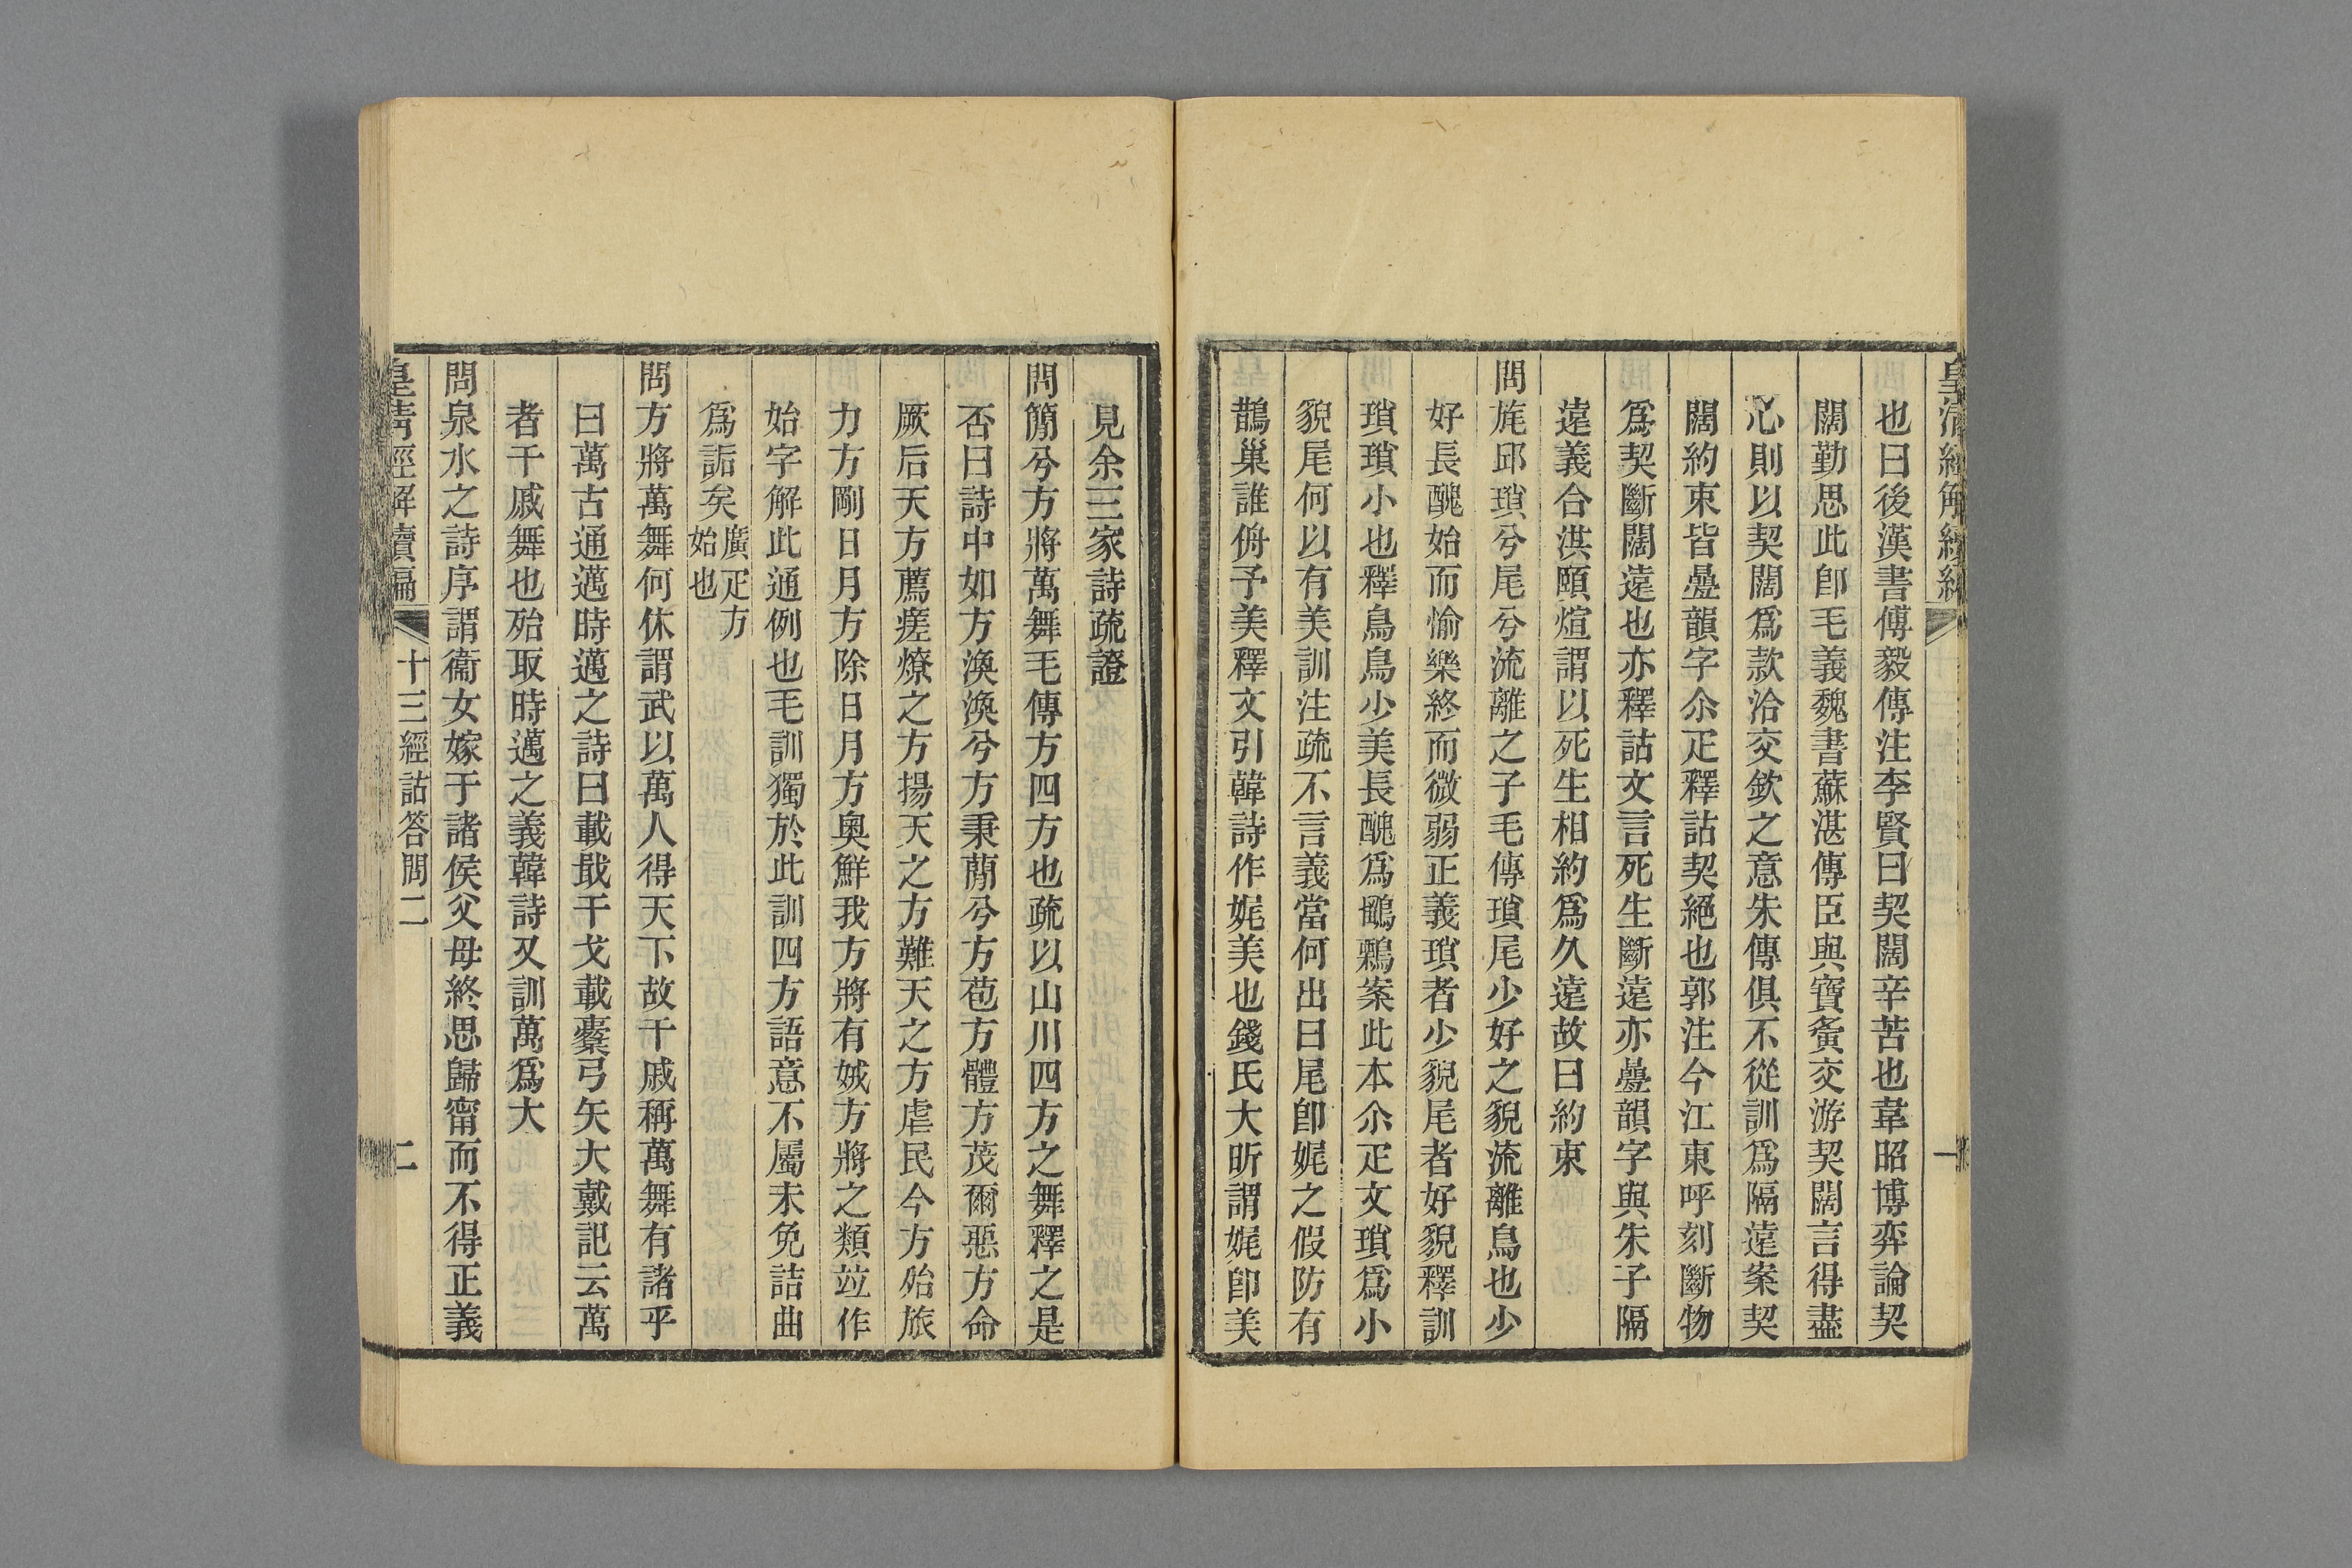 皇清經解續編
一
也曰後漢書傅毅傳注李賢曰契闊辛苦也韋昭博弈論契
闊勤思此卽毛義魏書蘇湛傳臣與寶夤交游契闊言得盡
心則以契闊爲款洽交欽之意朱傳俱不從訓爲隔遠案契
闊約束皆疊韻字尒疋釋詁契絕也郭注今江東呼刻斷物
爲契斷闊遠也亦釋詁文言死生斷遠亦疊韻字與朱子隔
遠義合洪頤煊謂以死生相約爲久遠故曰約束
問旄邱瑣兮尾兮流離之子毛傳瑣尾少好之貌流離鳥也少
好長醜始而愉樂終而微弱正義瑣者少貌尾者好貌釋訓
瑣瑣小也釋鳥鳥少美長醜爲鶹鷅案此本尒疋文瑣爲小
貌尾何以有美訓注疏不言義當何出曰尾卽娓之假防有
鵲巢誰侜予美釋文引韓詩作娓美也錢氏大昕謂娓卽美
見余三家詩疏證
問簡兮方將萬舞毛傳方四方也疏以山川四方之舞釋之是
否曰詩中如方渙渙兮方秉蕑兮方苞方體方茂爾惡方命
厥后天方薦瘥燎之方揚天之方難天之方虐民今方殆旅
力方剛日月方除日月方奧鮮我方將有娀方將之類竝作
始字解此通例也毛訓獨於此訓四方語意不屬未免詰曲
爲詬矣廣疋方
始也
問方將萬舞何休謂武以萬人得天下故干戚稱萬舞有諸乎
曰萬古通邁時邁之詩曰載戢干戈載櫜弓矢大戴記云萬
者干戚舞也殆取時邁之義韓詩又訓萬爲大
問泉水之詩序謂衞女嫁于諸侯父母終思歸甯而不得正義
皇清經解續編
十三經詁答問二
二